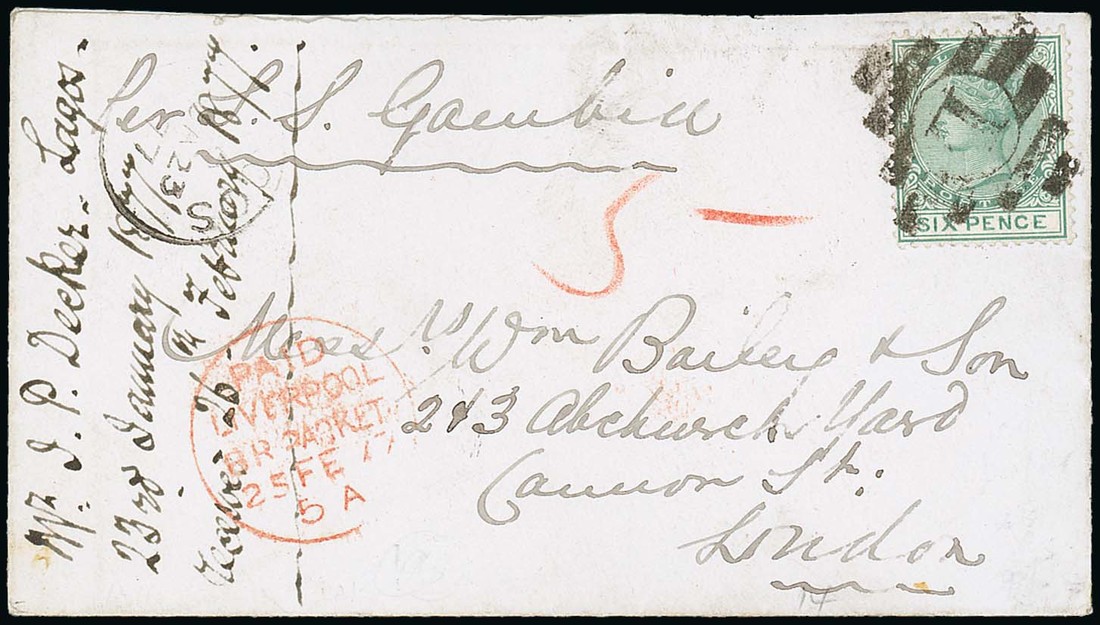 Per S. S. Gambia
5 -
Mess rs Wm Bailey & Son
2 & 3 Abchurch Yard
Cannon St.
London
Mr. J. P. Decker - Lagos -
23rd January 18
Received 26 February 1877.
PAID
LIVERPOOL
BR PACKET
25 FE 77
5 A
23
S
SIX PENCE